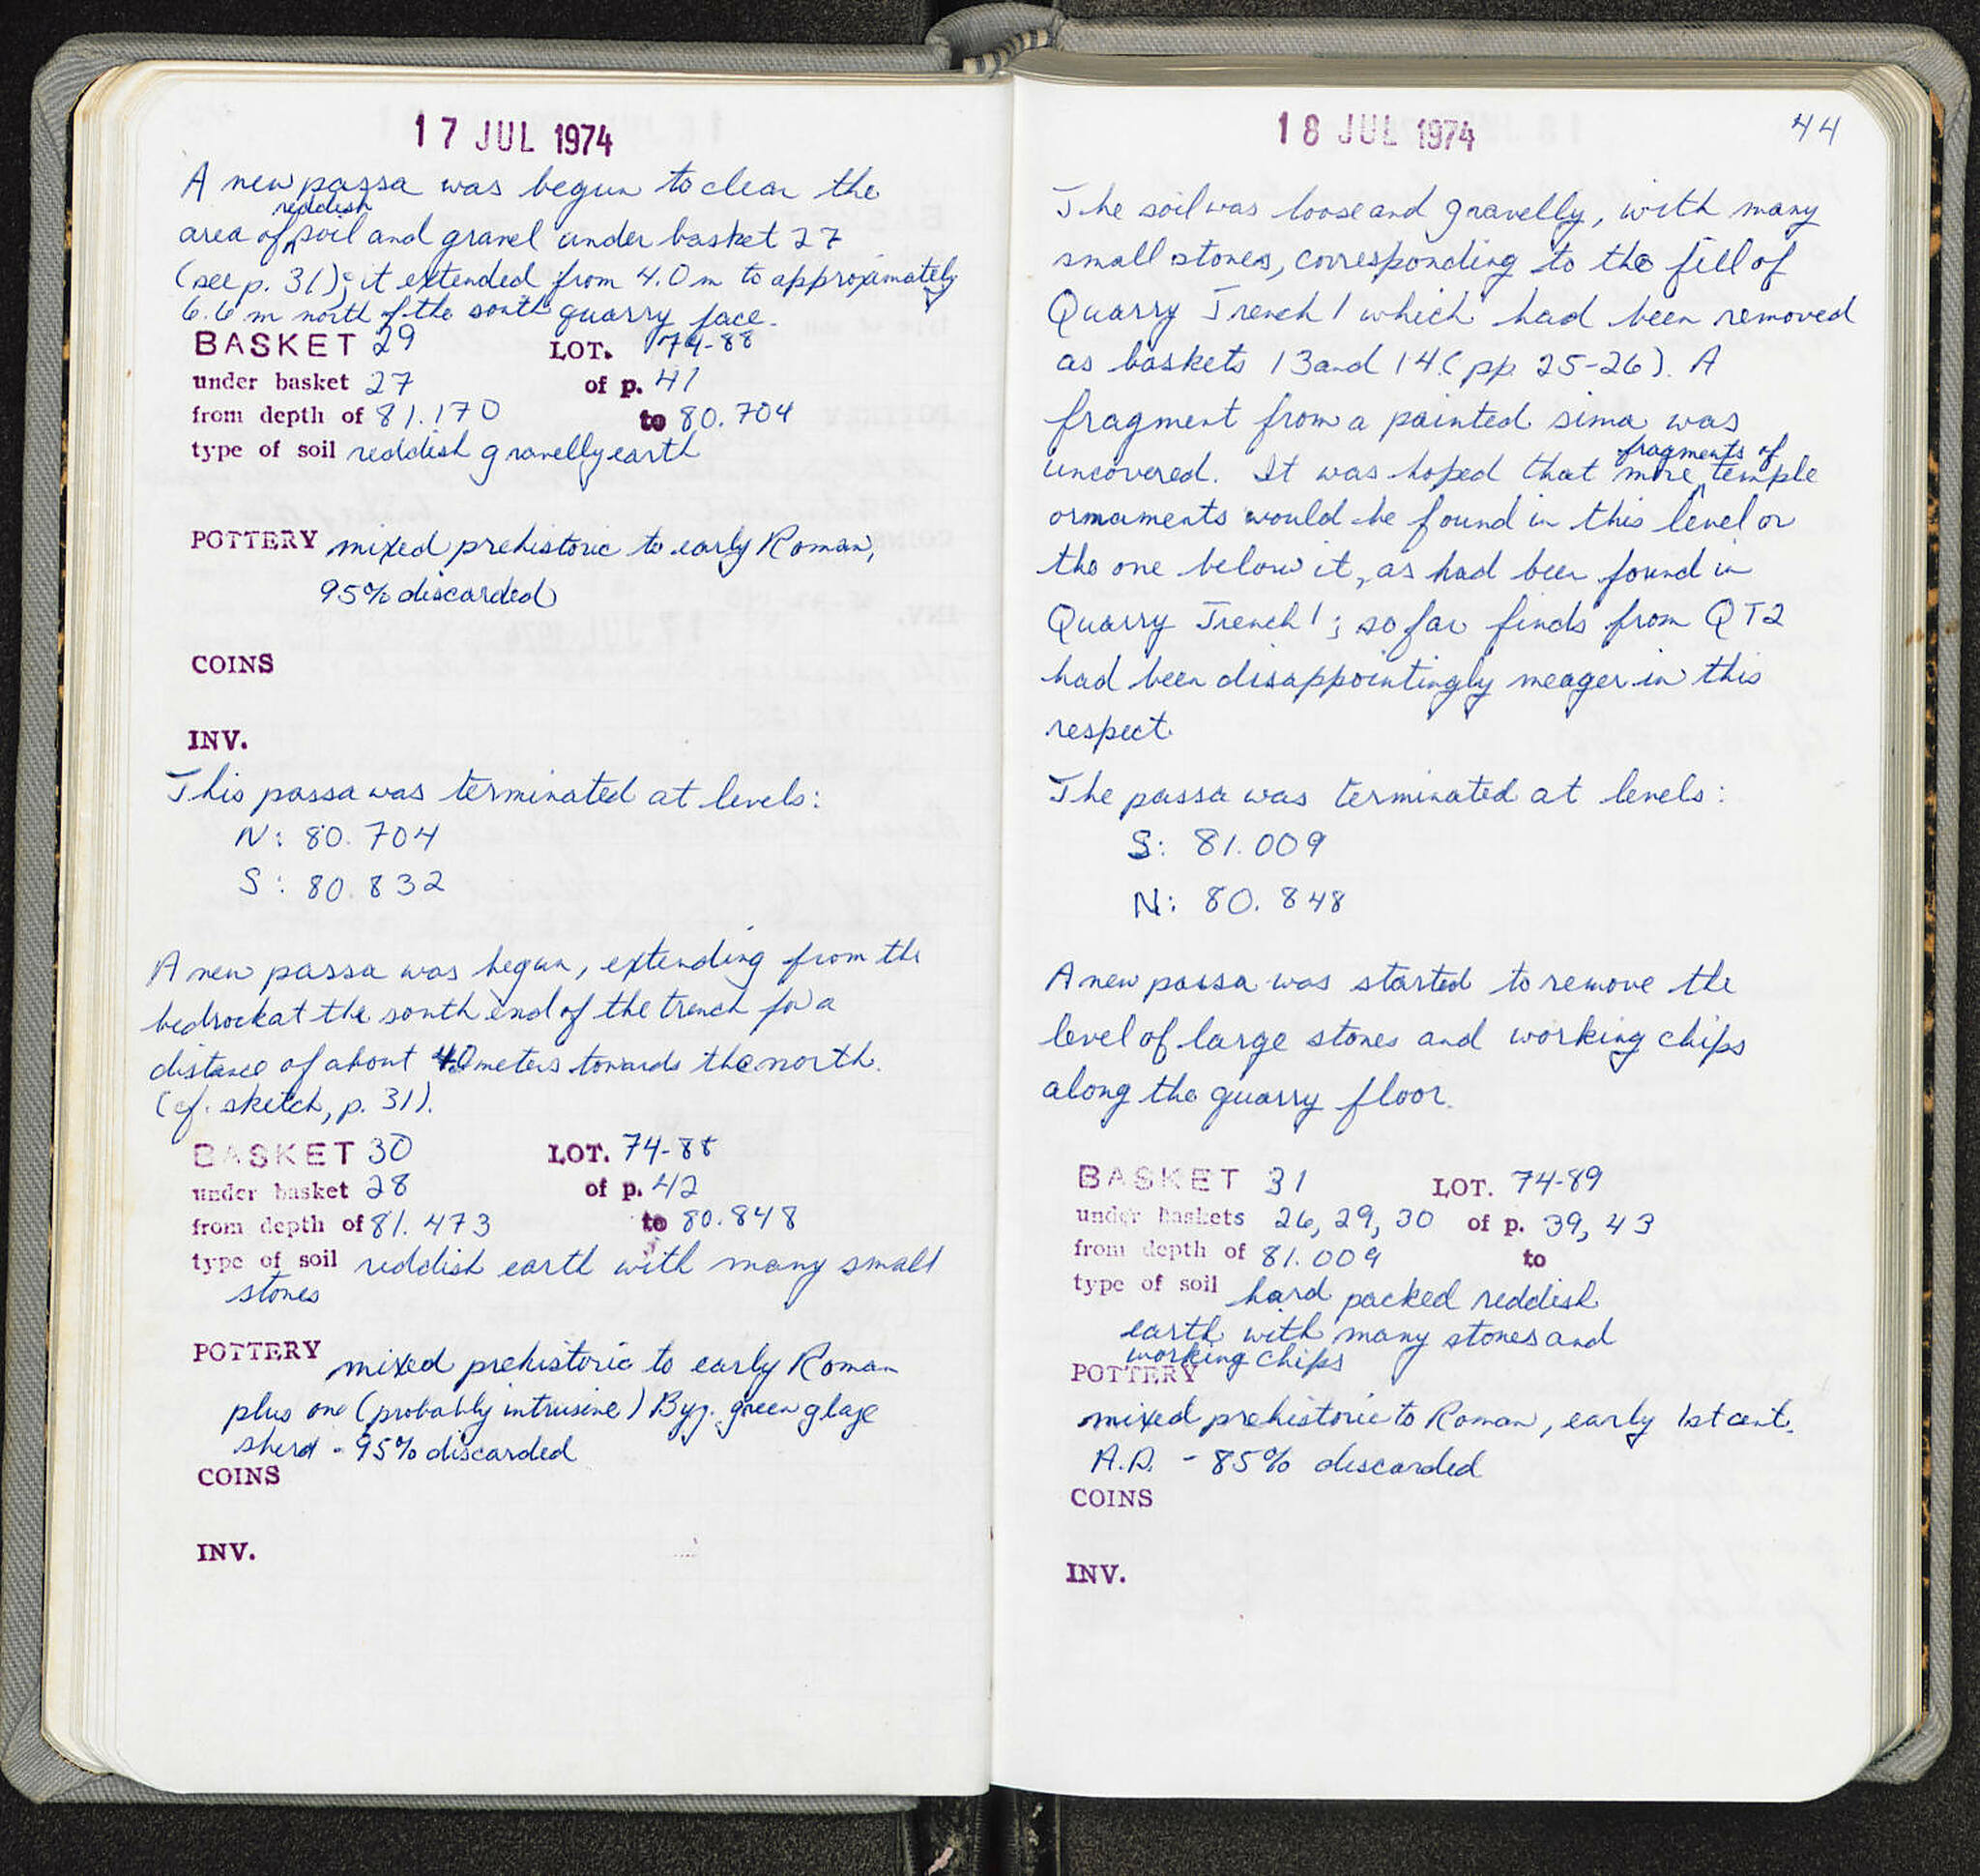 17 JUL 1974
A new passa was begun to clear the
reddish
area of soil and gravel under basket 27
(see p. 31); it extended from 4.0 m to approximately
6.6 m north of the south quarry face.
BASKET 29 LOT. 74-88
under basket 27 of p. 41
from depth of 81.170 to 80.704
type of soil reddish gravelly earth
POTTERY mixed prehistoric to early Roman,
95% discarded
COINS
INV.
This passa was terminated at levels:
N: 80.704
S: 80.832
A new passa was begun, extending from the
bedrock at the south end of the trench for a
distance of about 4.0 meters towards the north.
(cf. sketch, p. 31).
BASKET 30 LOT. 74-88
under basket 28 of p. 42
from depth of 81.473 to 80.848
type of soil reddish earth with many small
stones
POTTERY mixed prehistoric to early Roman
plus one (probably intrusive) Byz. green glaze
sherd - 95% discarded
COINS
INV.
18 JUL 1974 44
The soil was loose and gravelly, with many
small stones, corresponding to the fill of
Quarry Trench 1 which had been removed
as baskets 13 and 14 (pp. 25-26). A
fragment from a painted sima was
fragments of
uncovered. It was hoped that more temple
ornaments would be found in this level or
the one below it, as had been found in
Quarry Trench 1; so far finds from QT2
had been disappointingly meager in this
respect.
The passa was terminated at levels:
S: 81.009
N: 80.848
A new passa was started to remove the
level of large stones and working chips
along the quarry floor.
BASKET 31 LOT. 74-89
under baskets 26, 29, 30 of p. 39, 43
from depth of 81.009 to
type of soil hard packed reddish
earth with many stones and
working chips
POTTERY
mixed prehistoric to Roman, early 1st cent.
A.D. - 85% discarded
COINS
INV.